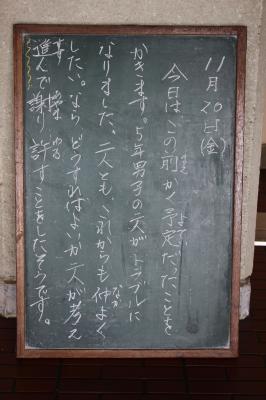 11月20日(金)
今日は、この前かく予定だったことを
かきます。5年男子の二人がトラブルに
なりました。二人とも、これからも仲よく
したい。なら、どうすればよいか二人が考え
進んで謝り許すことをしたそうです。